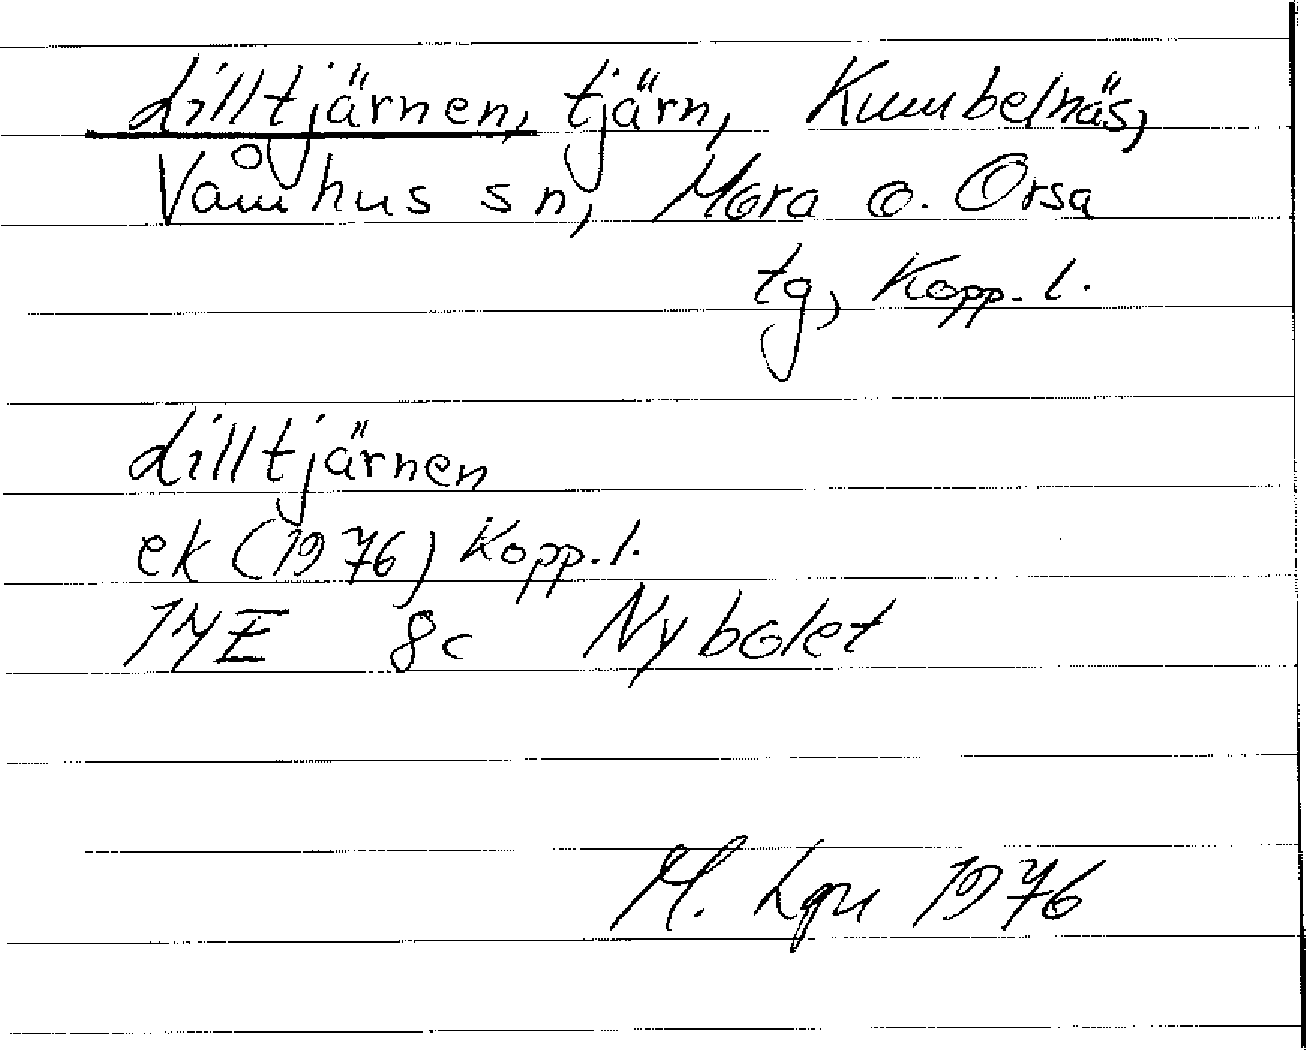 Lilltjärnen, tjärn, Kumbelnäs,
Våmhus sn, Mora o. Orsa
tg, Kopp. l.
Lilltjärnen
ek (1976) Kopp. l.
14E 8c Nybolet
M. Lgn 1976